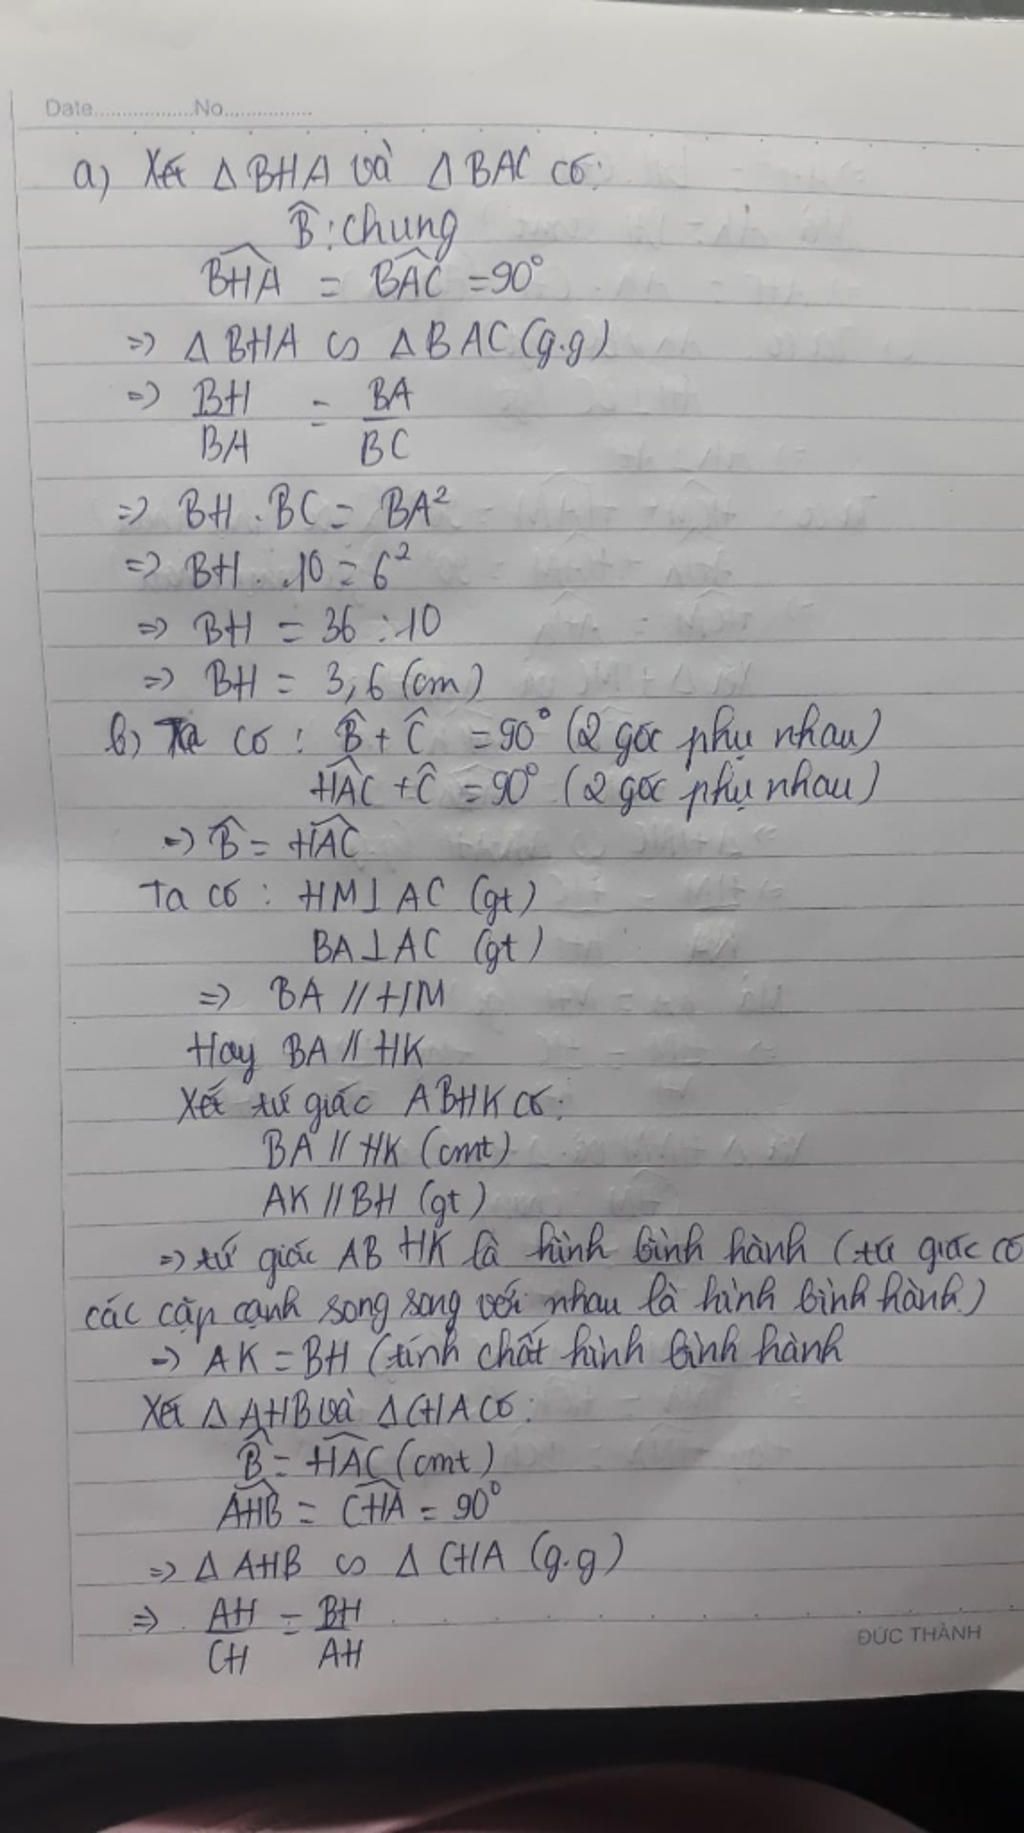 Date..................No................
a) Xét Δ BHA và Δ BAC có:
B̂ : chung
BHA^ = BAC^ = 90°
=> Δ BHA ∽ Δ BAC (g.g)
=> BH/BA = BA/BC
=> BH . BC = BA²
=> BH . 10 = 6²
=> BH = 36 : 10
=> BH = 3,6 (cm)
b) Ta có : B̂ + Ĉ = 90° (2 góc phụ nhau)
HAC^ + Ĉ = 90° (2 góc phụ nhau)
=> B̂ = HAC^
Ta có : HM ⊥ AC (gt)
BA ⊥ AC (gt)
=> BA // HM
Hay BA // HK
Xét tứ giác ABHK có:
BA // HK (cmt)
AK // BH (gt)
=> tứ giác ABHK là hình bình hành (tứ giác có
các cặp cạnh song song với nhau là hình bình hành)
=> AK = BH (tính chất hình bình hành
Xét Δ AHB và Δ CHA có:
B̂ = HAC^ (cmt)
AHB^ = CHA^ = 90°
=> Δ AHB ∽ Δ CHA (g.g)
=> AH/CH = BH/AH
ĐỨC THÀNH